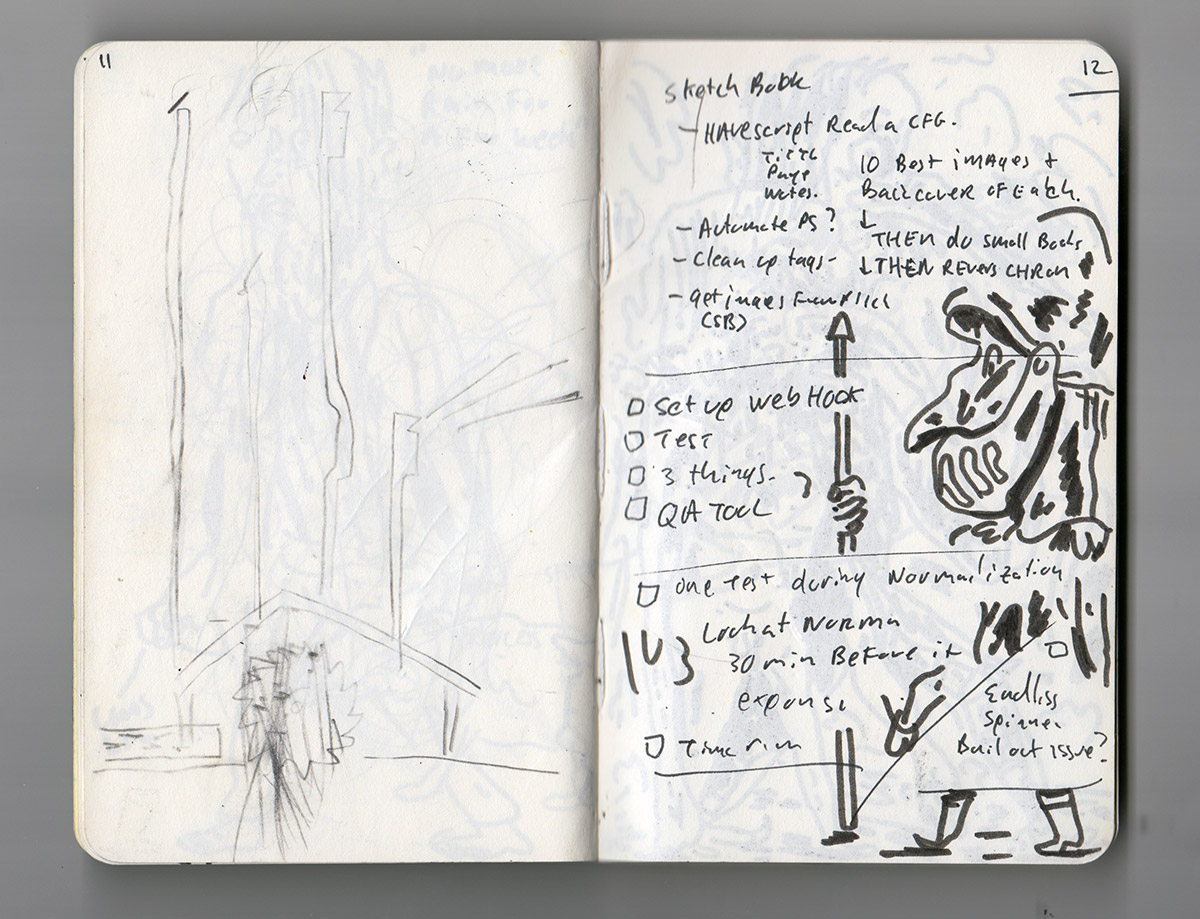 11
12
Sketch Book
- HAVE script Read a CFG.
Title
Page
Notes.
10 Best images +
Back cover of Eatch.
↓
THEN do small Books
↓ THEN Revers CHRon
- Automate PS?
- Clean up tags-
- get images From Flick
(SB)
□ Set up web Hook
□ Test
□ 3 things.
□ QA TOOL
□ one Test during Normailization
Look at Norma
30 min Before it
□
Endliss
Spinner
Bail out issue?
□ Time run